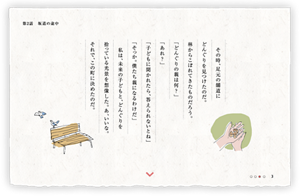 第2話 坂道の途中
その時、足元の側道に
どんぐりを見つけたのだ。
林からこぼれてきたものだろう。
「どんぐりの親は何？」
「あれ？」
「子どもに聞かれたら、答えられないとね」
「そっか、僕たち親になるわけだ」
私は、未来の子どもと、どんぐりを
拾っている光景を想像した。あ、いいな。
それで、この町に決めたのだ。
3